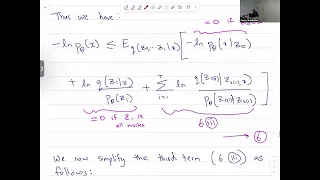 Thus we have:
= 0 if
- ln pθ(x) ≤ E q(z0,...z1|x) [ - ln pθ(x|z0)
+ ln q(z1|x) / pθ(z1) + Σ i=1 T ln q(zs(i)|zt(i),x) / pθ(zs(i)|zt(i)) ]
= 0 if z1 is
all masks
6 (iii)
→ (6)
We now simplify the third term (6 (iii)) as
follows: